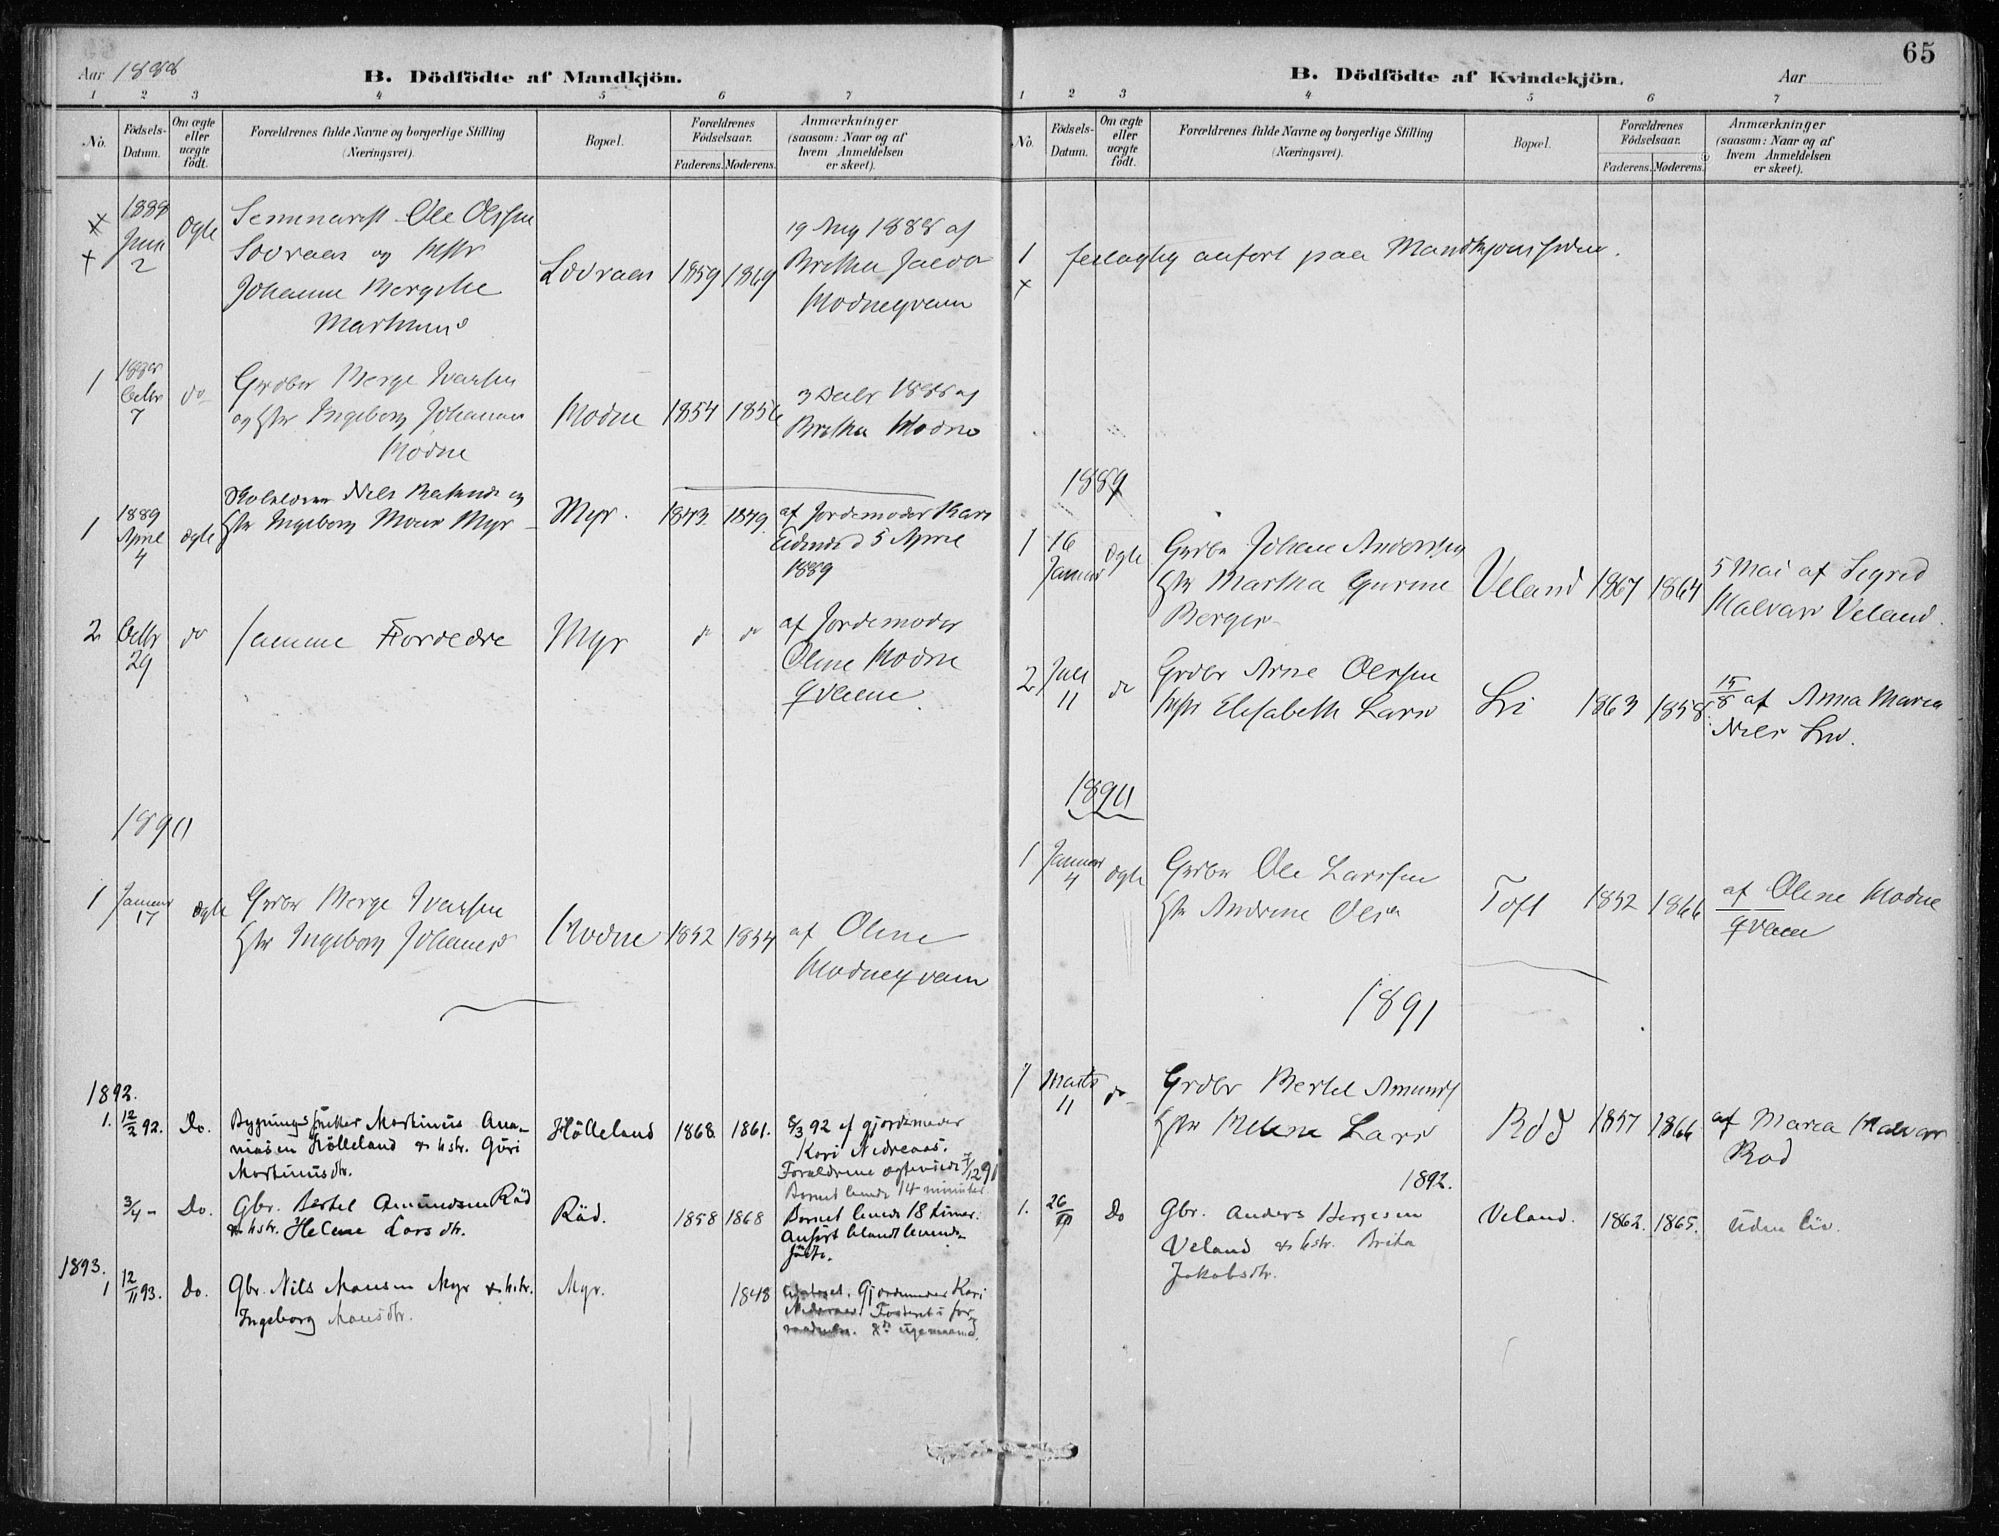 Aar 1888
B. Dödfödte af Mandkjön.
1 2 3 4 5 6 7
No.
Födsels-
Datum.
Om ægte
eller
uægte
födt.
Forældrenes fulde Navne og borgerlige Stilling
(Næringsvei).
Bopæl.
Forældrenes
Födselsaar.
Faderens. Moderens.
Anmærkninger
(saasom: Naar og af
hvem Anmeldelsen
er skeet).
1888
Juni
2
ægte
Seminarist Ole Olsen
Lovraas og Hstr
Johanne Bergithe
Lovraas 1859 1869
19 Aug 1888 af
Brithe
1
1888
Octbr
7
do
Grdbr Børge Iversen
og Hstr Ingeborg Johannes
Modne
Modne 1854 1856
3 Decbr 1888 af
Brithe Modne
1
1889
April
4
ægte
Nils
Hstr Ingeborg Mons Myr
Myr. 1843. 1849.
af Jordemoder Kari
5 April
1889
2
Octbr
29
do
samme Forældre
Myr
do do
af Jordemoder
Oline Modne
qvam.
1890
1
Januar
17
ægte
Grdbr Børge Iversen
Hstr Ingeborg Johannesd
Modne 1852 1854
af Oline
Modneqvam
1892.
1. 12/2 92. Do.
Bygningssnikker Martinus Ana-
niasen Hölleland & hstr. Guri
Martinusdtr.
Hölleland 1868. 1861.
8/3 92 af gjordemoder
Kari Nedreaas.
Forældrene ægteviede 7/12 91
Barnet levede 14 minuter
3/4 - Do.
Gbr. Bertel Amundsen Röd
& hstr. Helene Larsdtr.
Röd. 1858 1868
Barnet levede 18 timer.
Anfört blandt levende
födte.
1893.
1 12/11 93. Do.
Gbr. Nils Monsen Myr & hstr.
Ingeborg Monsdtr.
Myr. 1848
Gjordemoder Kari
Nedreaas. Fosteret i for-
65
B. Dödfödte af Kvindekjön.
Aar
1 2 3 4 5 6 7
No.
Födsels-
Datum.
Om ægte
eller
uægte
födt.
Forældrenes fulde Navne og borgerlige Stilling
(Næringsvei).
Bopæl.
Forældrenes
Födselsaar.
Faderens. Moderens.
Anmærkninger
(saasom: Naar og af
hvem Anmeldelsen
er skeet).
1
feilagtig anfört paa Mandkjönssiden.
1889
1
16
Januar
ægte
Grdbr Johan Andersen
Hstr Martha Gurine
Berger
Veland 1867 1864
5 Mai af Sigrid
Malvar Veland.
2
Juli
11
do
Grdbr Arne Olsen
Hstr Elisabeth Larsd
Li 1863 1858
15/8 af Anna Maria
Nils Li.
1890
1
Januar
4
ægte
Grdbr Ole Larsen
Hstr Andrine Olsd
Toft 1852 1866
af Oline Modne
qvam
1891
1
Marts
11
do
Grdbr Bertel Amunds
Hstr Helene Lars
Röd 1857 1866
af Maria Malvar
Rod
1892.
1. 26/11 Do
Gbr. Anders Bergesen
Veland & hstr. Brita
Jakobsdtr.
Veland. 1862. 1865.
Uden liv.